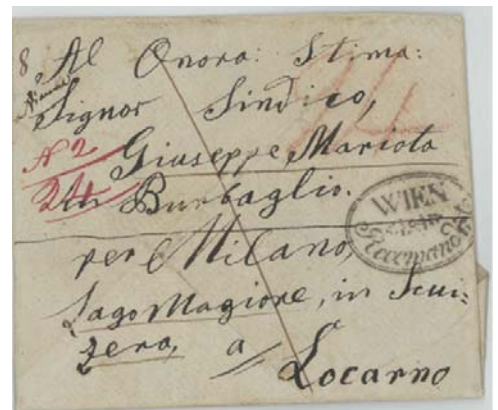 8 Al Onora: Stima:
Signor Sindico,
N 2
Giuseppe Mariota
24
in Burbaglio.
WIEN
Recomand
per Milano,
Lago Magiore, in Scui=
zera, a
Locarno